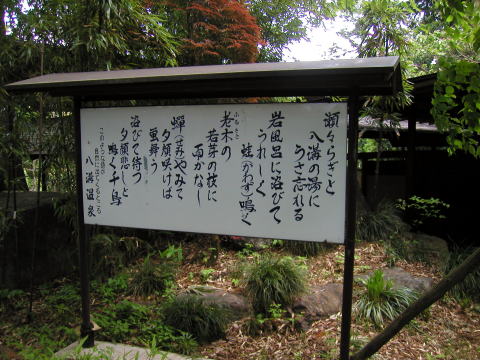 瀬々らぎと
八溝の湯に
うさ忘れる
岩風呂に浴びて
うれしく
蛙(かわず)鳴く
老木の
若芽の枝に
雨かなし
蟬(せみ)やみて
夕顔咲けば
蛍舞う
浴びて待つ
夕顔悲しと
鳴く千鳥
これ
自然に
八溝温泉